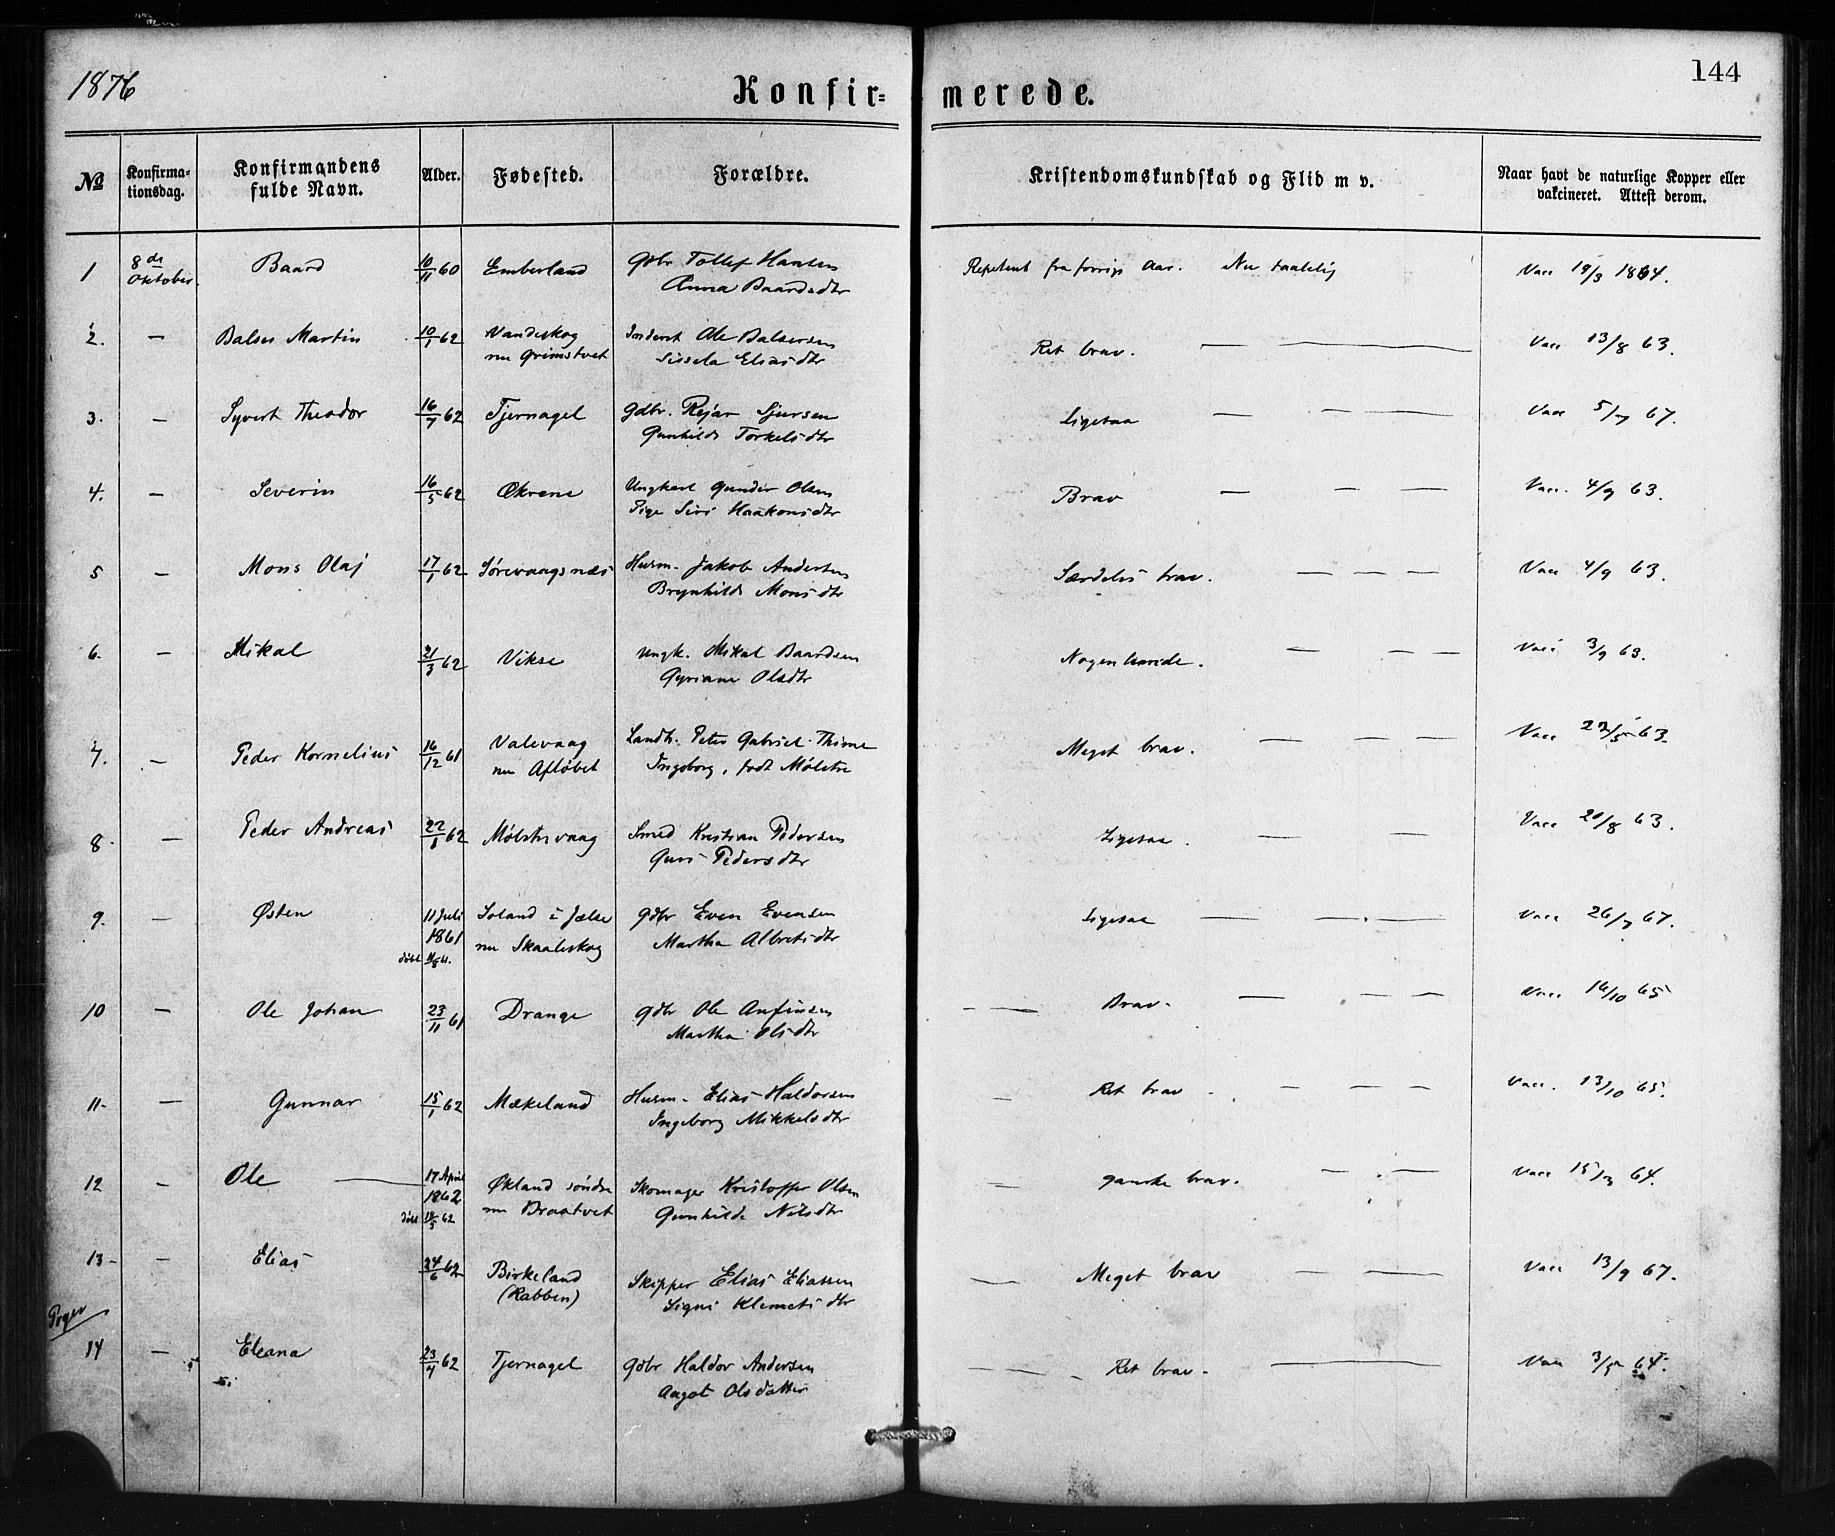 1876
Konfirmerede.
144
№ Konfirmationsdag. Konfirmandens fulde Navn. Alder. Fødested. Forældre. Kristendomskundskab og Flid m v. Naar havt de naturlige Kopper eller vakcineret. Attest derom.
1 8de Oktober. Baard 10/11 60 Emberland Gdbr Tollef Hansen Repetent fra forrige Aar. Nu taalelig Vacc 19/3 1864.
Anna Baardsdtr
2. — Balser Martin 10/1 62 Vandeskog Inderst Ole Balsersen Ret brav. — — Vacc 13/8 63.
nu Grimstvet Sissela Eliasdtr
3. — Syvert Theodor 16/7 62 Tjernagel Gdbr. Rejar Sjursen Ligesaa — — — Vacc 5/7 67.
Gunhilde Torkelsdtr
4. — Severin 16/5 62 Økrene Ungkarl Gunder Olsen Brav — — — Vacc. 4/9 63.
Pige Siri Haakonsdtr
5 — Mons Olaj 17/1 62 Sørevaagsnæs Husm. Jakob Andersen Særdeles brav. — — — Vacc 4/9 63.
Brynhilde Monsdtr
6. — Mikal 21/3 62 Vikse Ungk. Mikal Baardsen Nogenlunde. — — — Vacc 3/9 63.
Gyriane Olsdtr
7. — Peder Kornelius 16/12 61 Valevaag Landh. Peter Gabriel Thime Meget brav. — — — Vacc 22/5 63.
nu Afløbet Ingeborg, født Mølstre
8. — Peder Andreas 22/1 62 Mølstrevaag Smed Kristian Pedersen Ligesaa. — — Vacc 20/8 63.
Guri Pedersdtr
9. — Østen 11 Juli 1861 Soland i Jælse Gdbr Even Evensen Ligesaa — — — Vacc 26/7 67.
døbt nu Skaaleskog Martha Albretsdtr
10 — Ole Johan 23/11 61 Drange Gdbr Ole Anfinsen — — Brav. — — — Vacc 16/10 65
Martha Olsdtr
11. — Gunnar 15/1 62 Mækeland Husm. Elias Haldorsen — Ret brav. — — — Vacc. 13/10 65.
Ingeborg Mikkelsdtr
12 — Ole — 17 April 1862 Økland søndre Skomager Kristoffer Olsen — ganske brav. — — Vacc 15/3 64.
døbt 18/5 62 nu Braatvet Gunhilde Nilsdtr
13. — Elias 24/6 62 Birkeland Skipper Elias Eliassen — Meget brav — — Vacc 13/9 67.
(Rabben) Signi Klemetsdtr
Piger
14 — Eleana 23/4 62 Tjernagel Gdbr Haldor Andersen — — Ret brav. — Vacc 3/5 64.
Aagot Olsdatter